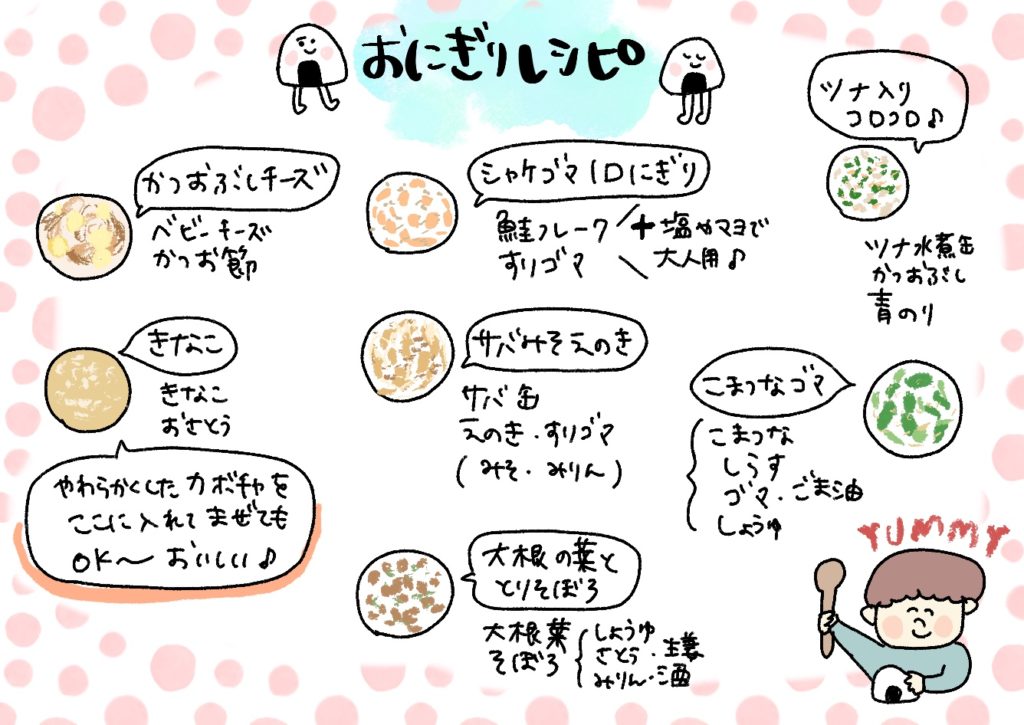 おにぎりレシピ
かつおぶしチーズ
ベビーチーズ
かつお節
シャケゴマ1口にぎり
鮭フレーク
すりゴマ
+塩やマヨで
大人用♪
ツナ入り
コロコロ♪
ツナ水煮缶
かつおぶし
青のり
きなこ
きなこ
おさとう
やわらかくしたカボチャを
ここに入れてまぜても
OK〜おいしい♪
サバみそえのき
サバ缶
えのき・すりゴマ
(みそ・みりん)
こまつなゴマ
こまつな
しらす
ゴマ・ごま油
しょうゆ
大根の葉と
とりそぼろ
大根葉
そぼろ
しょうゆ
さとう・生姜
みりん・酒
YUMMY